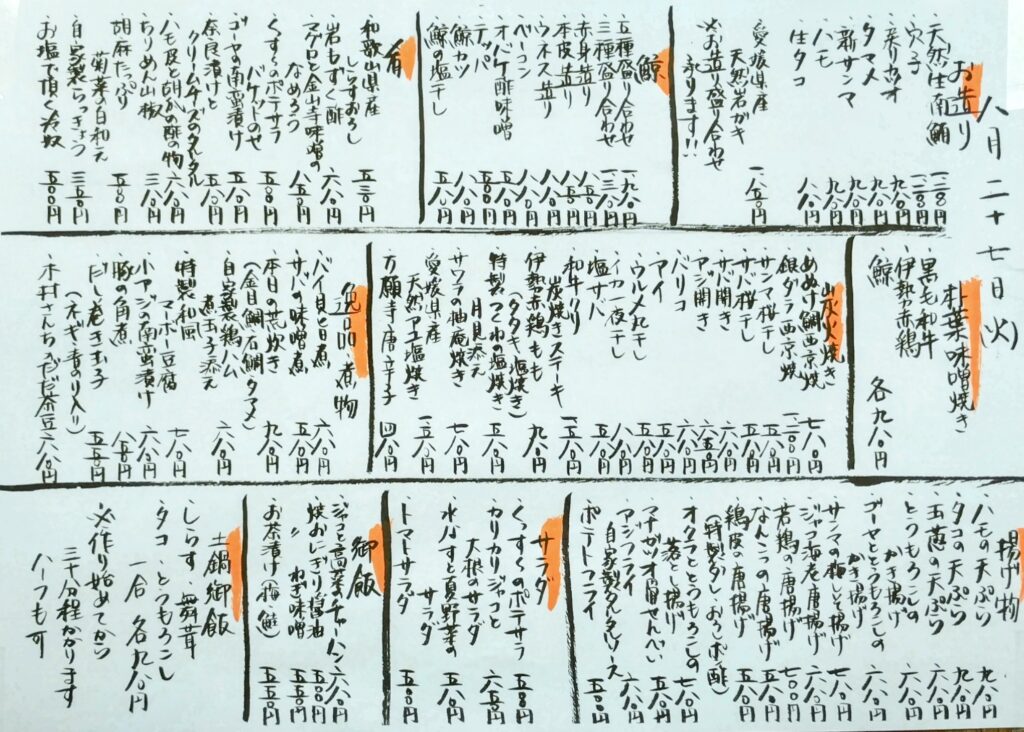 八月二十七日(火)
お造り
・天然生南鮪 一二八〇円
・穴子 一二〇〇円
・新リカツオ 九八〇円
・タマメ 九八〇円
・新サンマ 九八〇円
・ハモ 九八〇円
・生タコ 八八〇円
・愛媛県産
天然岩ガキ 一、八〇円
※お造り盛り合わせ
承ります!!
鯨
・五種盛り合わせ
・三種盛り合わせ
・赤身造り
・本皮造り
・ウネス造り
・ベーコン
・オバケ酢味噌
・テッパ
・鯨カツ
・鯨の塩干し
肴
・和歌山県産
しらすおろし 五三〇円
・岩もずく酢 六八〇円
・マグロと金山寺味噌の
なめろう 八五〇円
・くすくすのポテサラ
バケットのせ 五五〇円
・ゴーヤの南蛮漬け 五八〇円
・奈良漬けと
クリームチーズのタルタル 五五〇円
・ハモ皮と胡瓜の酢の物 六八〇円
・ちりめん山椒 三八〇円
・胡麻たっぷり
菊菜の白和え 五八〇円
・自家製らっきょう 三五〇円
・お塩で頂く冷奴 五五〇円
朴葉味噌焼き
・黒毛和牛
・伊勢赤鶏
・鯨
各九八〇円
炭火焼
・めぬけ鯛西京焼 七八〇円
・銀ダラ西京焼
・サンマ桜干し
・サバ桜干し
・サバ開き
・アジ開き
・バリコ
・アイ
・ウルメ丸干し
・イカ一夜干し
・塩サバ
・和牛
炭焼きステーキ
・伊勢赤鶏もも
(タタキ、塩焼き) 九八〇円
・特製つくね塩焼き
月見添え 五八〇円
・サワラの柚庵焼き 七八〇円
・愛媛県産
天然アユ塩焼き
・万願寺唐辛子 四八〇円
逸品・煮物
・バイ貝旨煮 六八〇円
・サバの味噌煮 五八〇円
・本日の荒炊き
(金目鯛、石鯛、タマメ) 九八〇円
・自家製鶏ハム
煮玉子添え 六八〇円
・特製和風
マーボー豆腐 七八〇円
・小アジの南蛮漬け 六八〇円
・豚の角煮 八八〇円
・だし巻き玉子
(ネギ、青のり入り)
・木村さんちのだだ茶豆 六八〇円
揚げ物
・ハモの天ぷら 九八〇円
・タコの天ぷら 九八〇円
・玉葱の天ぷら 六八〇円
・とうもろこしの
かき揚げ 六八〇円
・ゴーヤととうもろこしの
かき揚げ 六八〇円
・サンマの梅しそ揚げ 七八〇円
・ジャコ海老唐揚げ 六八〇円
・若鶏の唐揚げ 七〇〇円
・なんこつの唐揚げ 五八〇円
・鶏皮の唐揚げ
(特製ダレ・おろしポン酢) 五八〇円
・オクラととうもろこしの
落とし揚げ 七八〇円
・マナガツオ骨せんべい 五八〇円
・アジフライ
自家製タルタルソース 六八〇円
・ポテトフライ 五〇〇円
サラダ
・くすくすのポテサラ 五五〇円
・カリカリジャコと
大根のサラダ 六五〇円
・水なすと夏野菜の
サラダ 五八〇円
・トマトサラダ 五五〇円
御飯
・ジャコと高菜チャーハン 六八〇円
・焼おにぎり醤油 五〇〇円
〃 ねぎ味噌 五五〇円
・お茶漬け(梅・鮭) 五五〇円
土鍋御飯
・しらす・舞茸
・タコ・とうもろこし
一合 各九八〇円
※作り始めてから
三十分程かかります
ハーフも可